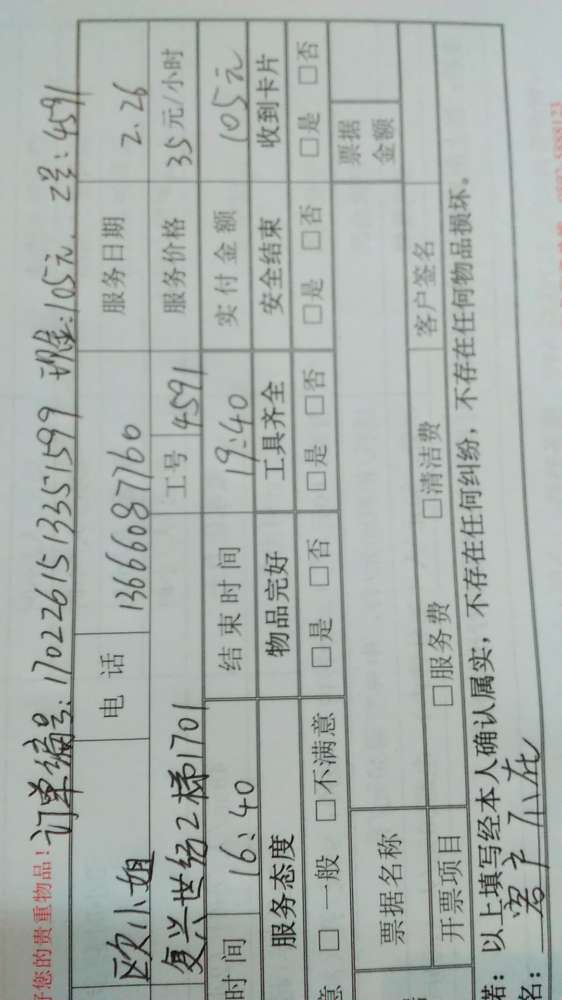 好您的贵重物品！
订单编号：1702261513351599 现金：105元、工号：4591
欧小姐 电话 13666087760 服务日期 2.26
复兴世纪2梯1701 工号 4591 服务价格 35元/小时
时间 16:40 结束时间 19:40 实付金额 105元
服务态度 物品完好 工具齐全 安全结束 收到卡片
意 □ 一般 □不满意 □是 □否 □是 □否 □是 □否 □是 □否
票据名称 票据金额
开票项目 □服务费 □清洁费 客户签名
诺：以上填写经本人确认属实，不存在任何纠纷，不存在任何物品损坏。
名：客户不在